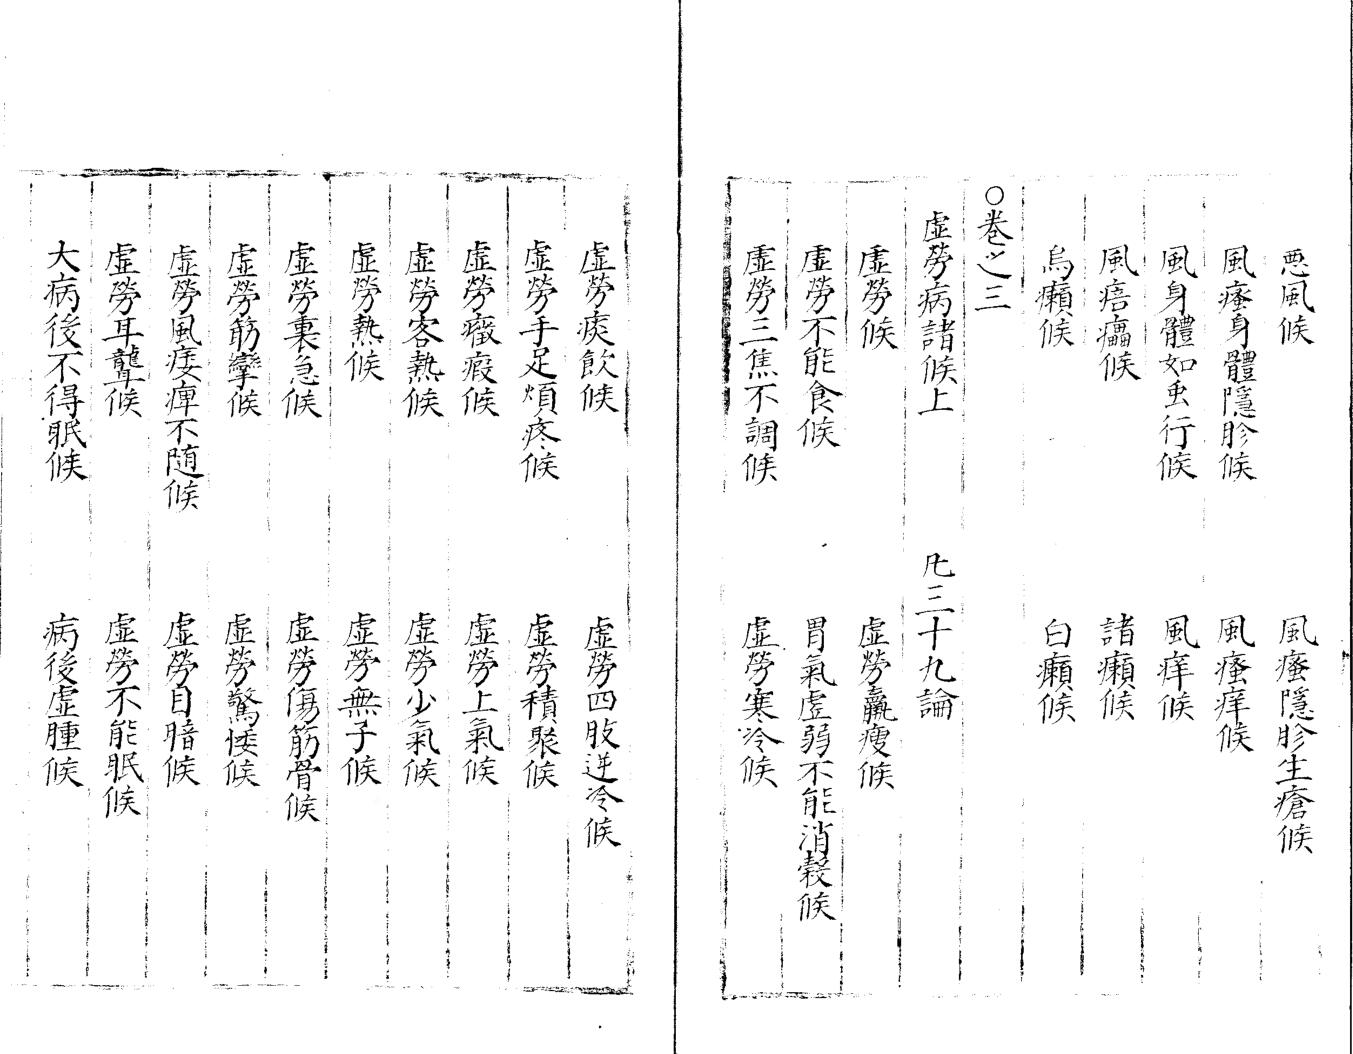 悪風候　風瘙隱胗生瘡候
風瘙身體隱胗候　風瘙痒候
風身體如虫行候　風痒候
風㾦㿔候　諸癩候
烏癩候　白癩候
○巻之三
虚勞病諸候上　凡三十九論
虚勞候　虚勞羸瘦候
虚勞不能食候　胃氣虚弱不能消穀候
虚勞三焦不調候　虚勞寒冷候
虚勞痰飲候　虚勞四肢逆冷候
虚勞手足煩疼候　虚勞積聚候
虚勞癥瘕候　虚勞上氣候
虚勞客熱候　虚勞少氣候
虚勞熱候　虚勞無子候
虚勞裏急候　虚勞傷筋骨候
虚勞筋攣候　虚勞驚悸候
虚勞風痿痺不随候　虚勞目暗候
虚勞耳聾候　虚勞不能眠候
大病後不得眠候　病後虚腫候